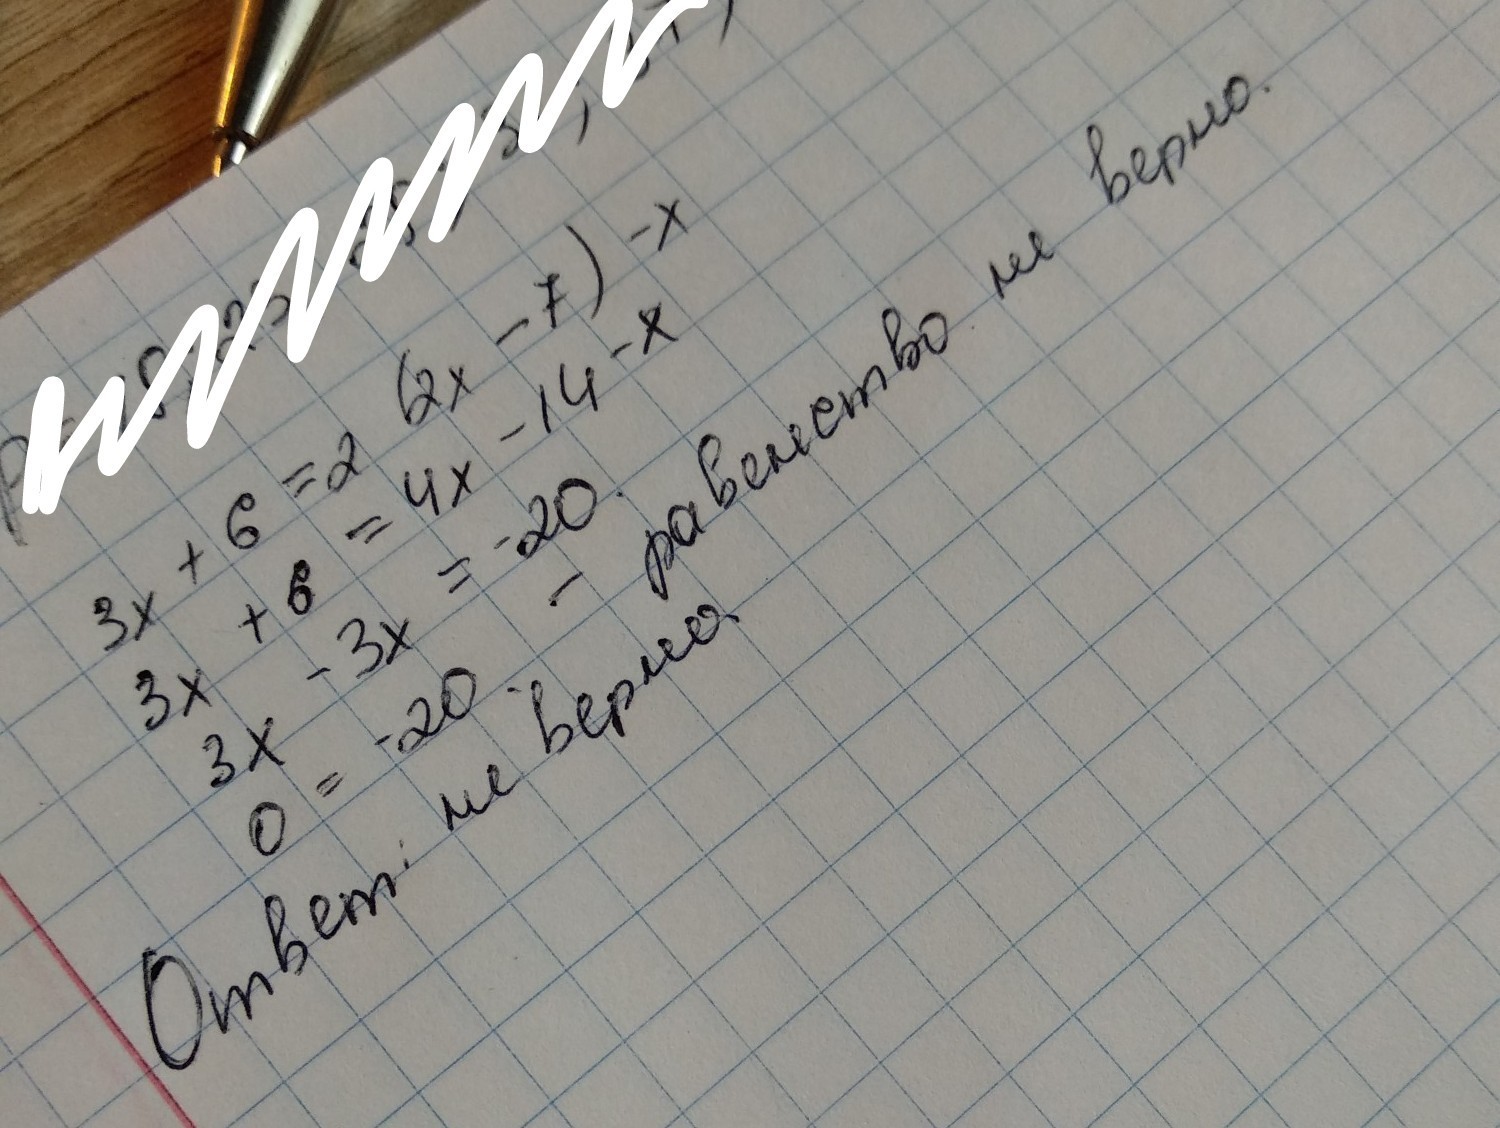 3x + 6 = 2 (2x - 7) - x
3x + 6 = 4x - 14 - x
3x - 3x = -20.
0 = -20. - равенство не верно.
Ответ: не верно.